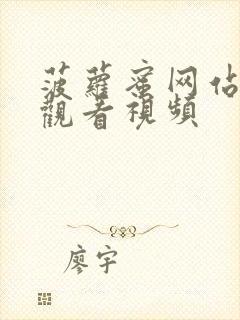 菠蘿蜜网佔
觀看視頻
廖宇